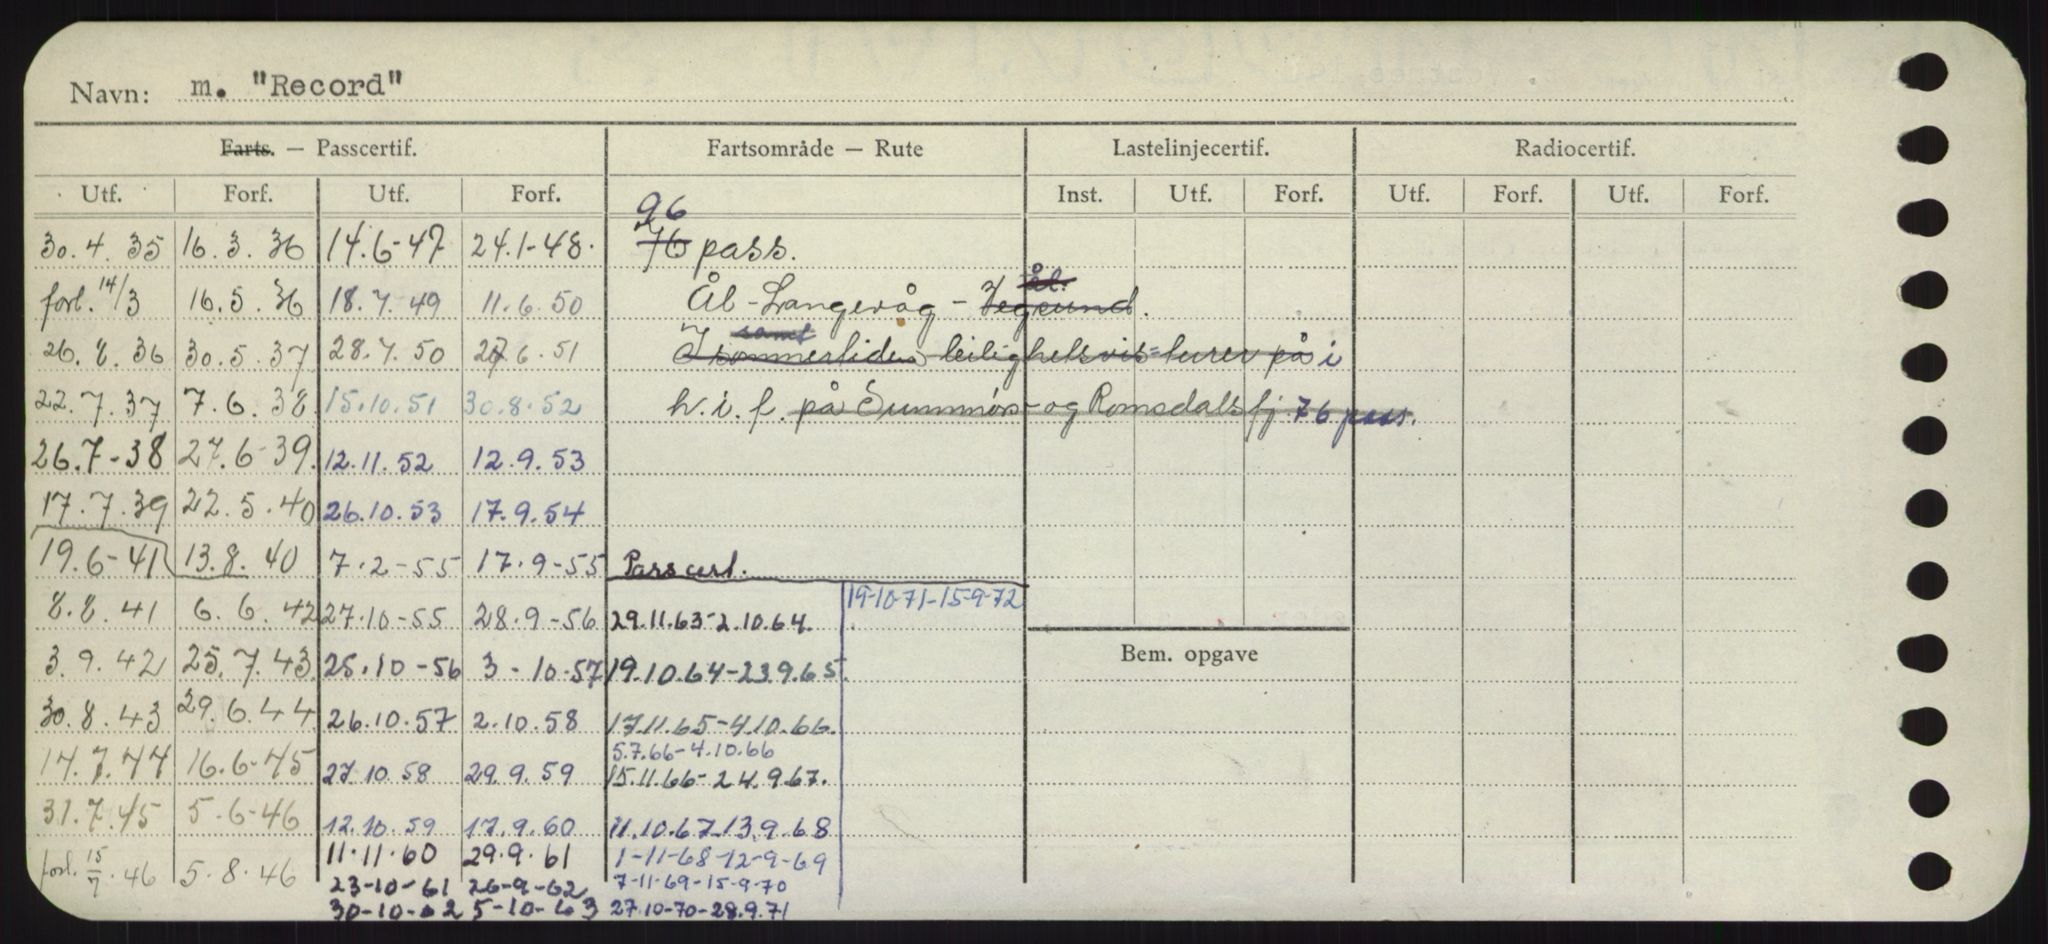 Navn: m. "Record"
Farts. — Passcertif. Fartsområde — Rute Lastelinjecertif. Radiocertif.
Utf. Forf. Utf. Forf. Inst. Utf. Forf. Utf. Forf. Utf. Forf.
96
30.4.35 16.3.36 14.6-47 24.1-48. 76 pass.
ål.
forl. 14/3 16.5.36 18.7.49 11.6.50 Ål - Langevåg -
samt
26.8.36 30.5.37 28.7.50 27.6.51 I sommertiden leilighetsvis turer på i
22.7.37 7.6.38 15.10.51 30.8.52 h.i.f. på Sunnmørs- og Romsdalsfj 76 pass.
26.7-38 27.6-39. 12.11.52 12.9.53
17.7.39 22.5.40 26.10.53 17.9.54
19.6-41 13.8.40 7.2-55 17.9-55 Passcert.
19-10-71-15-9-72
8.8.41 6.6.42 27.10-55 28.9-56 29.11.63-2.10.64.
Bem. opgave
3.9.42 25.7.43 25.10-56 3-10-57 19.10.64-23.9.65.
30.8.43 29.6.44 26.10.57 2.10.58 17.11.65-4.10.66.
5.7.66-4.10.66
14.7.44 16.6-45 27.10.58 29.9.59 15.11.66-24.9.67.
31.7.45 5.6-46 12.10.59 17.9.60 11.10.67-13.9.68
11.11.60 29.9.61 1-11-68-12-9-69
forl. 15/7.46 5.8.46 23-10-61 26-9-62 7-11-69-15-9-70
30-10-62 5-10-63 27.10-70-28.9.71